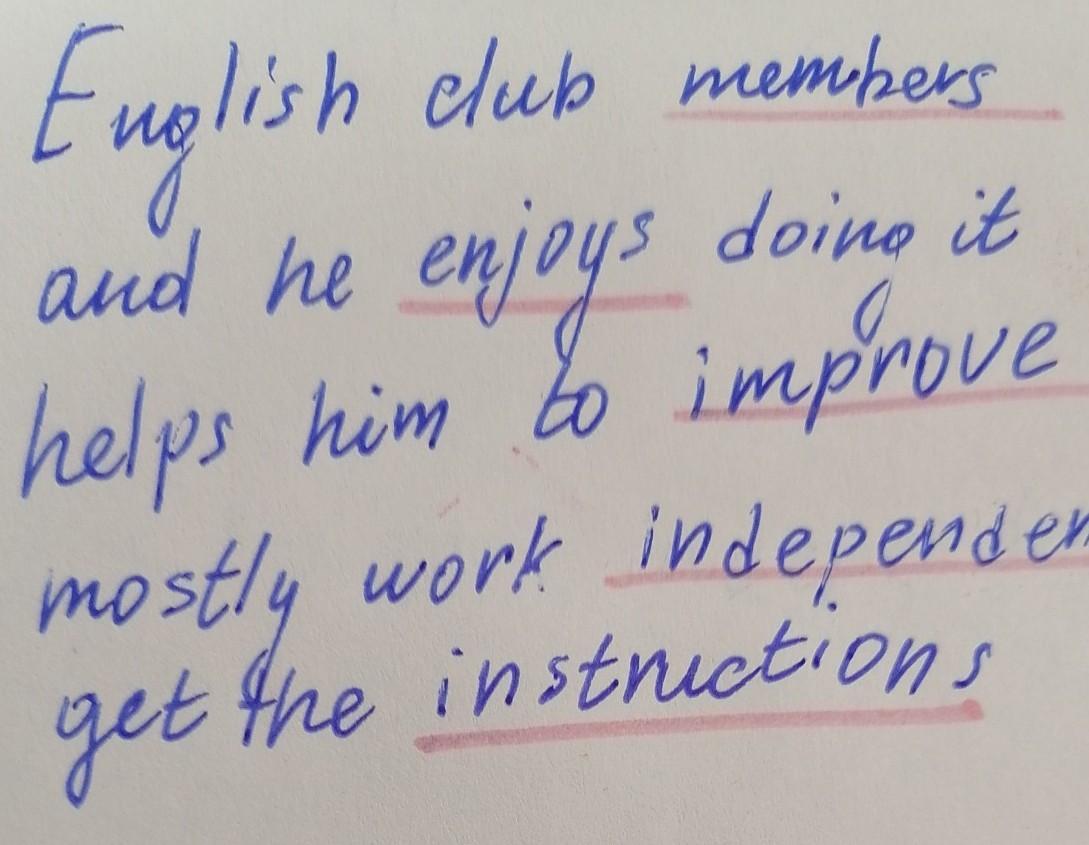 English club members
and he enjoys doing it
helps him to improve
mostly work independen
get the instructions